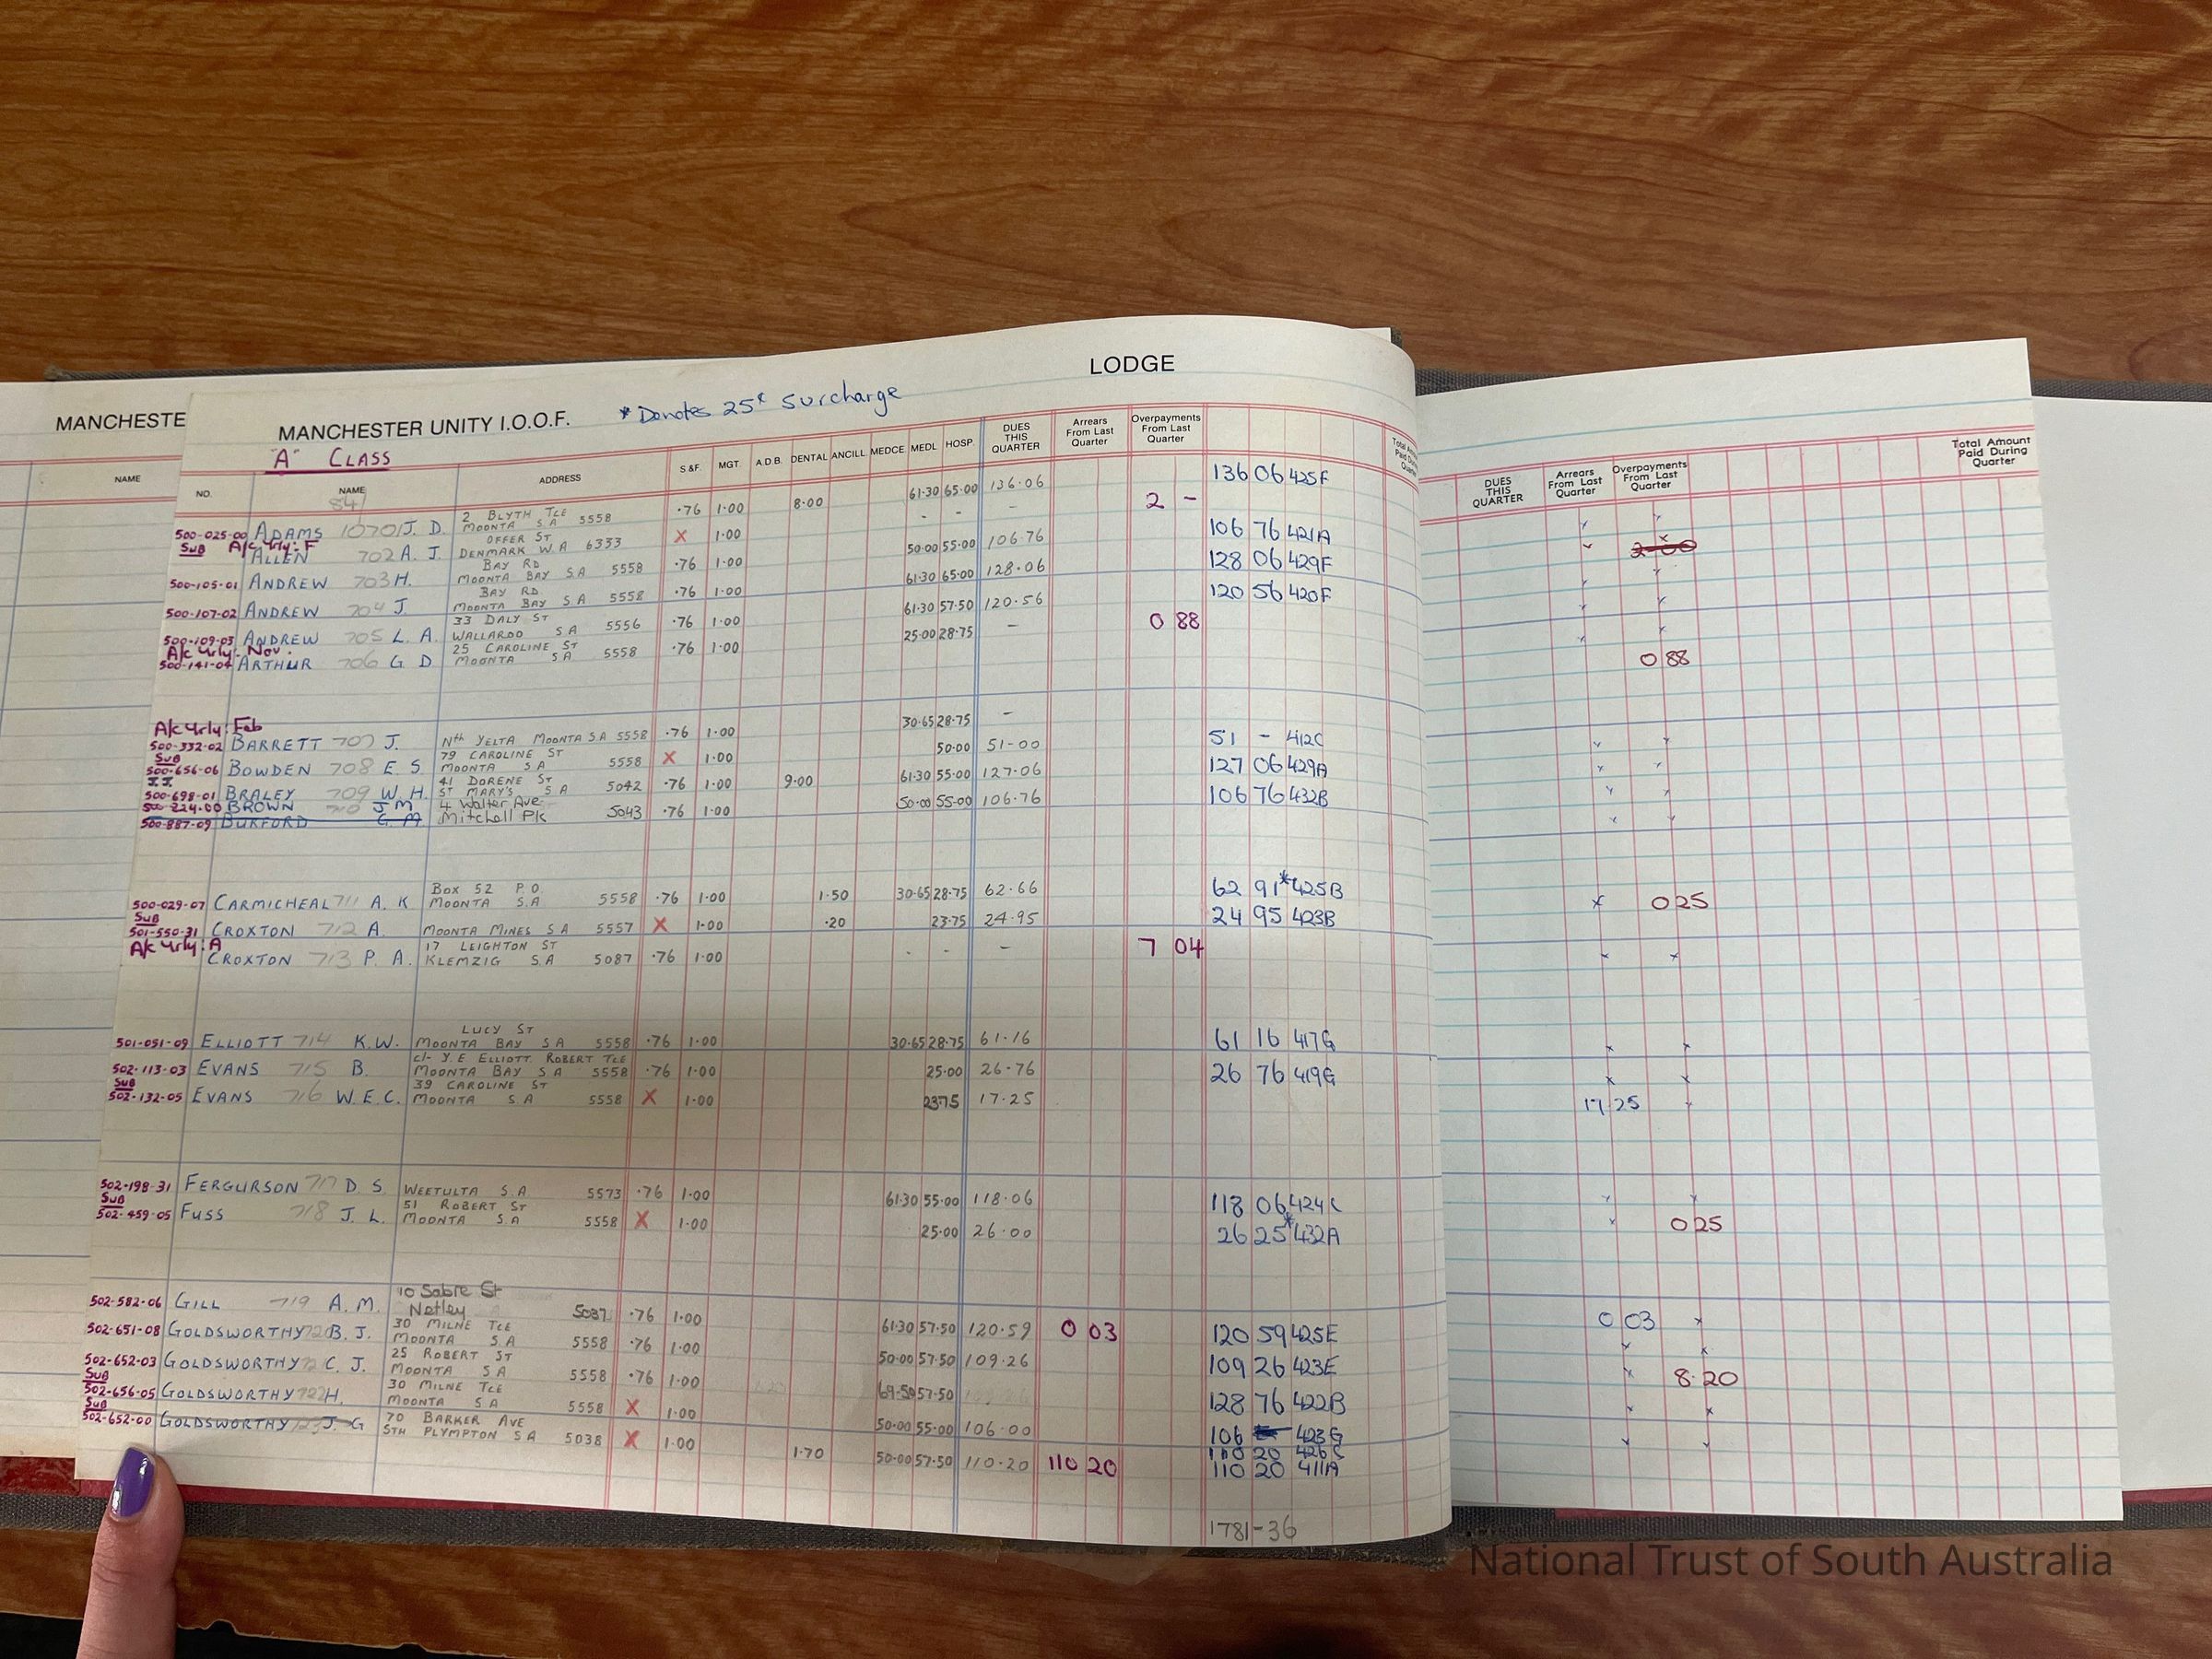 LODGE
MANCHESTE
MANCHESTER UNITY I.O.O.F. * Denotes 25c surcharge
"A" CLASS
NAME
NO. NAME ADDRESS S.&F. MGT. A.D.B. DENTAL ANCILL. MEDCE. MEDL HOSP. DUES THIS QUARTER Arrears From Last Quarter Overpayments From Last Quarter
841
500-025-00 ADAMS 10701 J. D. 2 BLYTH TCE MOONTA S A 5558 ·76 1·00 8·00 61·30 65·00 136·06 136 06 425F
SUB A/c Yrly: F ALLEN 702 A. J. OFFER ST DENMARK W.A 6333 X 1·00 - - - 2 -
500-105-01 ANDREW 703 H. BAY RD MOONTA BAY S A 5558 ·76 1·00 50·00 55·00 106·76 106 76 421A
500-107-02 ANDREW 704 J. BAY RD MOONTA BAY S A 5558 ·76 1·00 61·30 65·00 128·06 128 06 429F
500-109-03 ANDREW 705 L. A. 33 DALY ST WALLAROO S A 5556 ·76 1·00 61·30 57·50 120·56 120 56 420F
A/c Yrly: Nov.
500-141-04 ARTHUR 706 G D 25 CAROLINE ST MOONTA S A 5558 ·76 1·00 25·00 28·75 - 0 88
A/c Yrly: Feb
500-332-02 BARRETT 707 J. Nth YELTA MOONTA S A 5558 ·76 1·00 30·65 28·75 -
SUB
500-656-06 BOWDEN 708 E. S. 79 CAROLINE ST MOONTA S A 5558 X 1·00 50·00 51-00 51 - 412C
J.J.
500-698-01 BRALEY 709 W. H. 41 DORENE ST ST MARY'S S A 5042 ·76 1·00 9·00 61·30 55·00 127·06 127 06 429A
500-224-00 BROWN 710 J M 4 Walter Ave Mitchell Pk 5043 ·76 1·00 50·00 55·00 106·76 106 76 432B
500-887-09 BURFORD G. M.
500-029-07 CARMICHEAL 711 A. K Box 52 P.O. MOONTA S.A 5558 ·76 1·00 1·50 30·65 28·75 62·66 62 91 * 425B
SUB
501-550-31 CROXTON 712 A. MOONTA MINES S A 5557 X 1·00 ·20 23·75 24·95 24 95 423B
A/c Yrly: A CROXTON 713 P. A. 17 LEIGHTON ST KLEMZIG S.A 5087 ·76 1·00 - - - 7 04
501-051-09 ELLIOTT 714 K.W. LUCY ST MOONTA BAY S A 5558 ·76 1·00 30·65 28·75 61·16 61 16 417G
502-113-03 EVANS 715 B. c/- Y.E ELLIOTT ROBERT TCE MOONTA BAY S A 5558 ·76 1·00 25·00 26·76 26 76 419G
SUB
502-132-05 EVANS 716 W.E.C. 39 CAROLINE ST MOONTA S A 5558 X 1·00 2375 17·25
502-198-31 FERGURSON 717 D S. WEETULTA S.A 5573 ·76 1·00 61·30 55·00 118·06 118 06 424C
SUB
502-459-05 FUSS 718 J. L. 51 ROBERT ST MOONTA S.A 5558 X 1·00 25·00 26·00 26 25 * 432A
502-582-06 GILL 719 A. M. 10 Sabre St Netley 5037 ·76 1·00 61·30 57·50 120·59 0 03 120 59 425E
502-651-08 GOLDSWORTHY 720 B. J. 30 MILNE TCE MOONTA S A 5558 ·76 1·00 50·00 57·50 109·26 109 26 423E
502-652-03 GOLDSWORTHY 721 C. J. 25 ROBERT ST MOONTA S A 5558 ·76 1·00 69·50 57·50 128 76 422B
SUB
502-656-05 GOLDSWORTHY 722 H. 30 MILNE TCE MOONTA S A 5558 X 1·00 50·00 55·00 106·00 106 423G
SUB
502-652-00 GOLDSWORTHY 723 J. G 70 BARKER AVE STH PLYMPTON S A 5038 X 1·00 1·70 50·00 57·50 110·20 110 20 110 20 426C
110 20 411A
1781-36
Total Amount Paid During Quarter
DUES THIS QUARTER Arrears From Last Quarter Overpayments From Last Quarter Total Amount Paid During Quarter
2-00
0 88
0 25
17 25
0 25
0 03
8·20
National Trust of South Australia